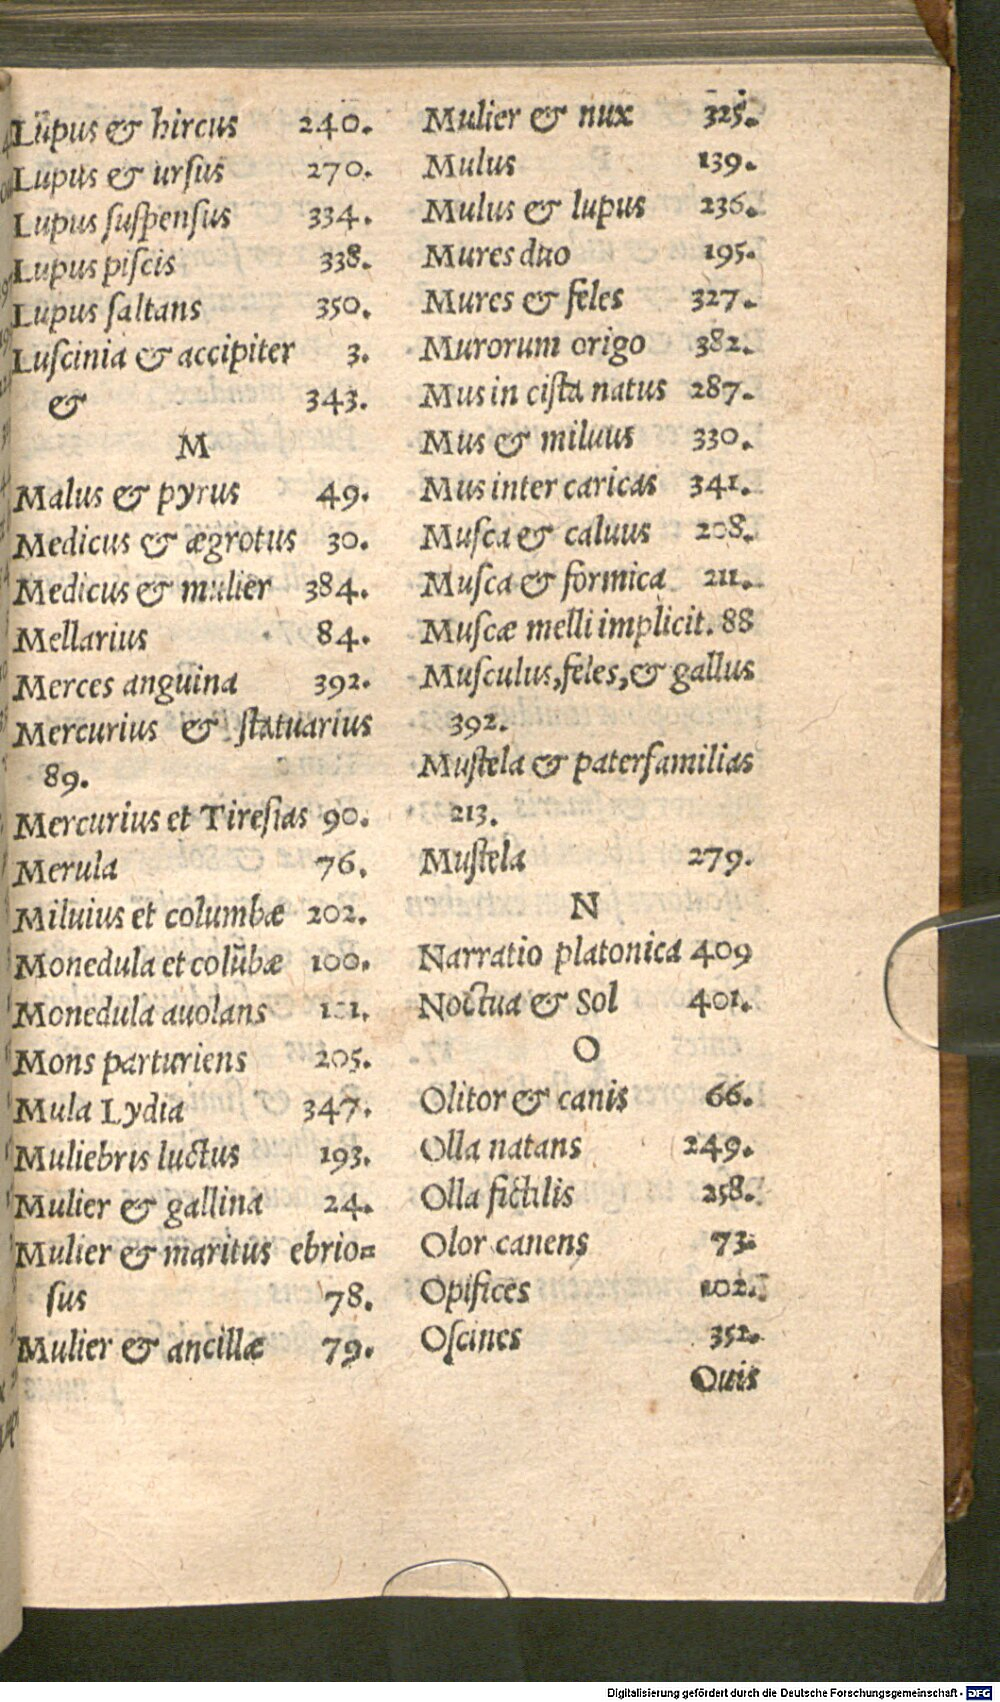 Lupus & hircus 240.
Lupus & urſus 270.
Lupus ſuſpenſus 334.
Lupus piſcis 338.
Lupus ſaltans 350.
Luſcinia & accipiter 3.
& 343.
M
Malus & pyrus 49.
Medicus & ægrotus 30.
Medicus & mulier 384.
Mellarius 84.
Merces anguina 392.
Mercurius & ſtatuarius
89.
Mercurius et Tireſias 90.
Merula 76.
Miluius et columbæ 202.
Monedula et colūbæ 100.
Monedula auolans
Mons parturiens 205.
Mula Lydia 347.
Muliebris luctus 193.
Mulier & gallina 24.
Mulier & maritus ebrio=
ſus 78.
Mulier & ancillæ 79.
Mulier & nux 325.
Mulus 139.
Mulus & lupus 236.
Mures duo 195.
Mures & feles 327.
Murorum origo 382.
Mus in ciſta natus 287.
Mus & miluus 330.
Mus inter caricas 341.
Muſca & caluus 208.
Muſca & formica 211.
Muſcæ melli implicit. 88
Muſculus, feles, & gallus
392.
Muſtela & paterfamilias
213.
Muſtela 279.
N
Narratio platonica 409
Noctua & Sol 401.
O
Olitor & canis 66.
Olla natans 249.
Olla fictilis 258.
Olor canens 73.
Opifices 102.
Oſcines 352.
Ouis
Digitalisierung gefördert durch die Deutsche Forschungsgemeinschaft - DFG